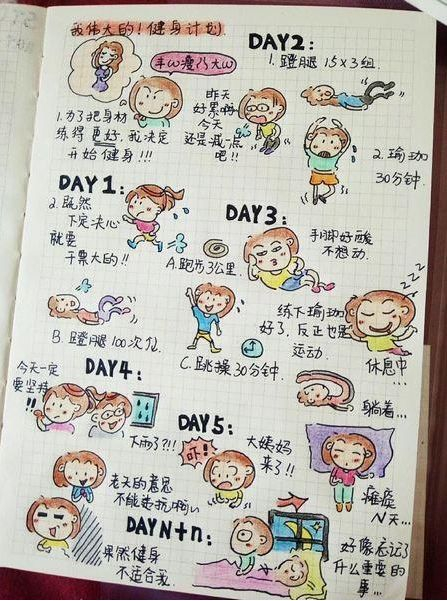 我伟大的!健身计划
丰ω瘦乃大ω
1.为了把身材
练得更好,我决定
开始健身!!!
DAY1:
2.既然
下定决心
就要
干票大的!!
A.跑步3公里.
B.蹬腿100次/位.
C.跳操30分钟.
DAY2:
1.蹬腿 15x3组.
昨天
好累啊
今天
还是减一点
吧!!
2.瑜珈
30分钟.
DAY3:
手脚好酸
不想动.
练下瑜珈
好了,反正也是
运动.
zzz
休息中...
躺着...
DAY4:
今天一定
要坚持
!!
下雨了?!!
老天的意思
不能违抗啊
DAY5:
吓!
大姨妈
来了!!
瘫痪
N天...
DAYN+n:
果然健身
不适合我.
好像忘记了
什么重要的
事...